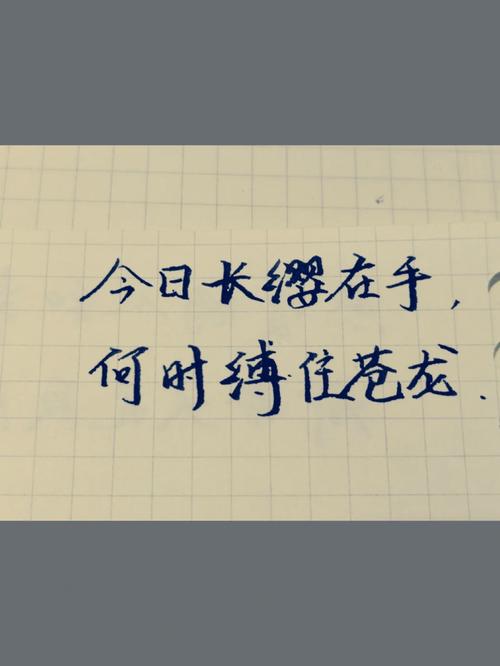 今日长缨在手，
何时缚住苍龙.